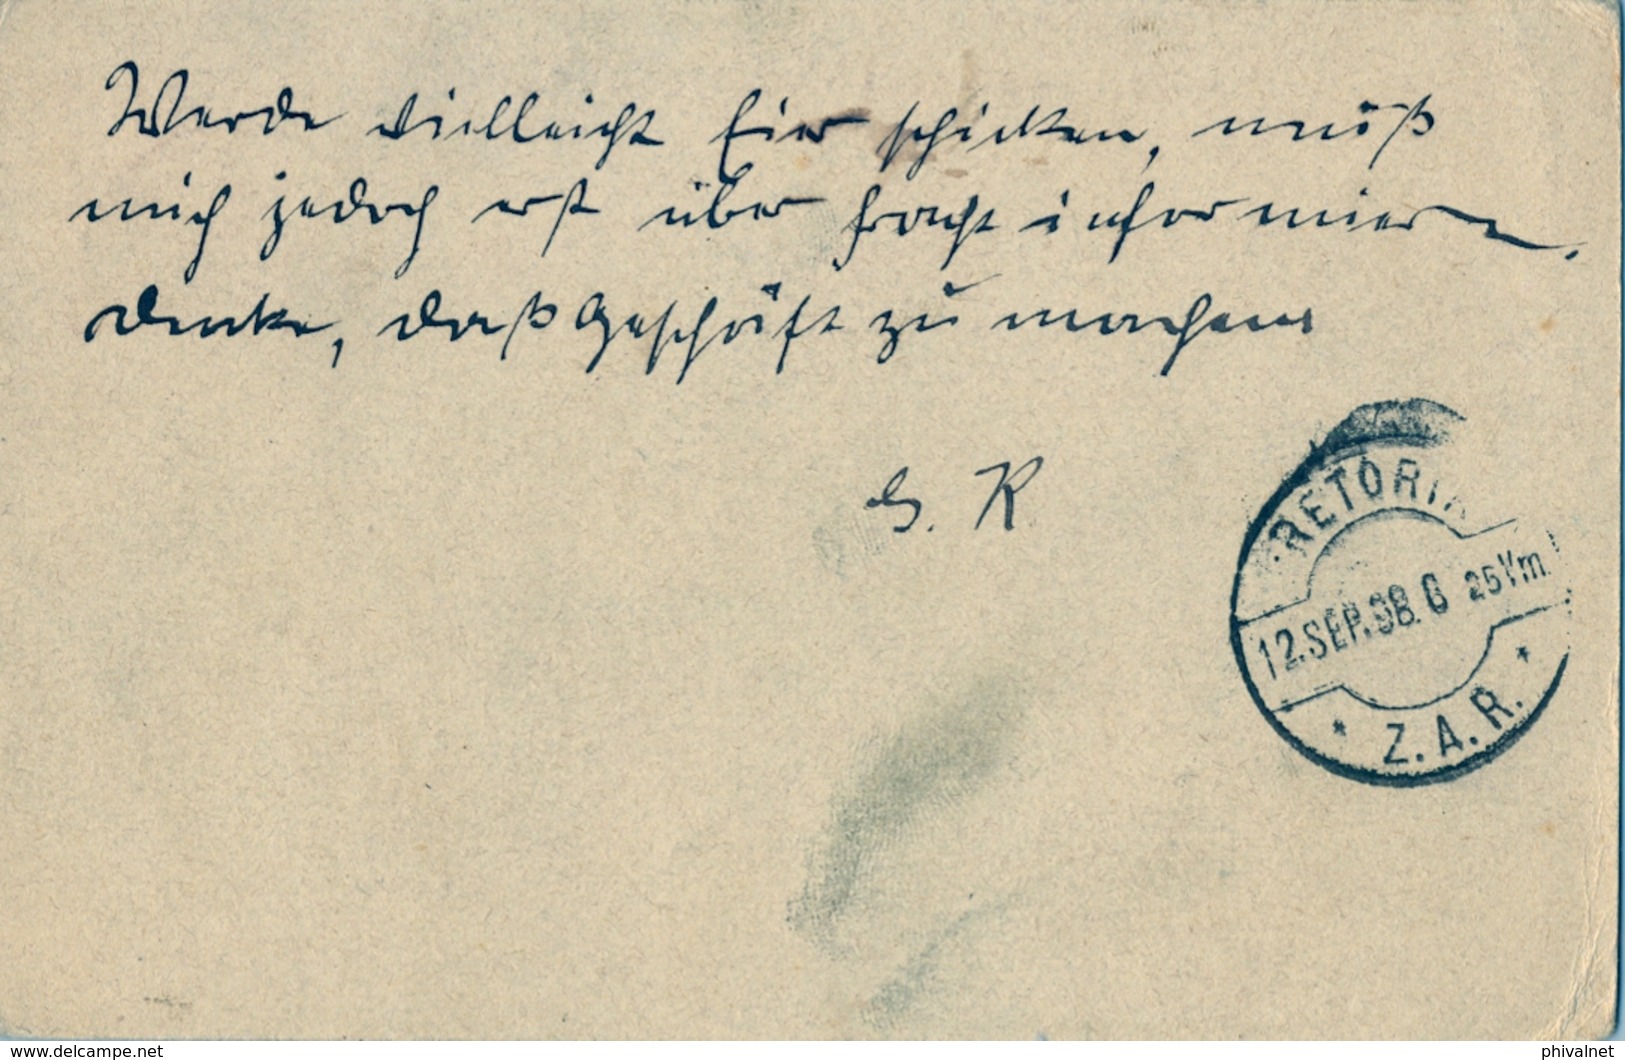 Werde vielleicht Eier schicken, muß
mich jedoch erst über Fracht informieren,
denke, daß Geschäft zu machen
G. K
PRETORIA
12.SEP.98.6 25Vm.
Z.A.R.
www.delcampe.net
phivalnet